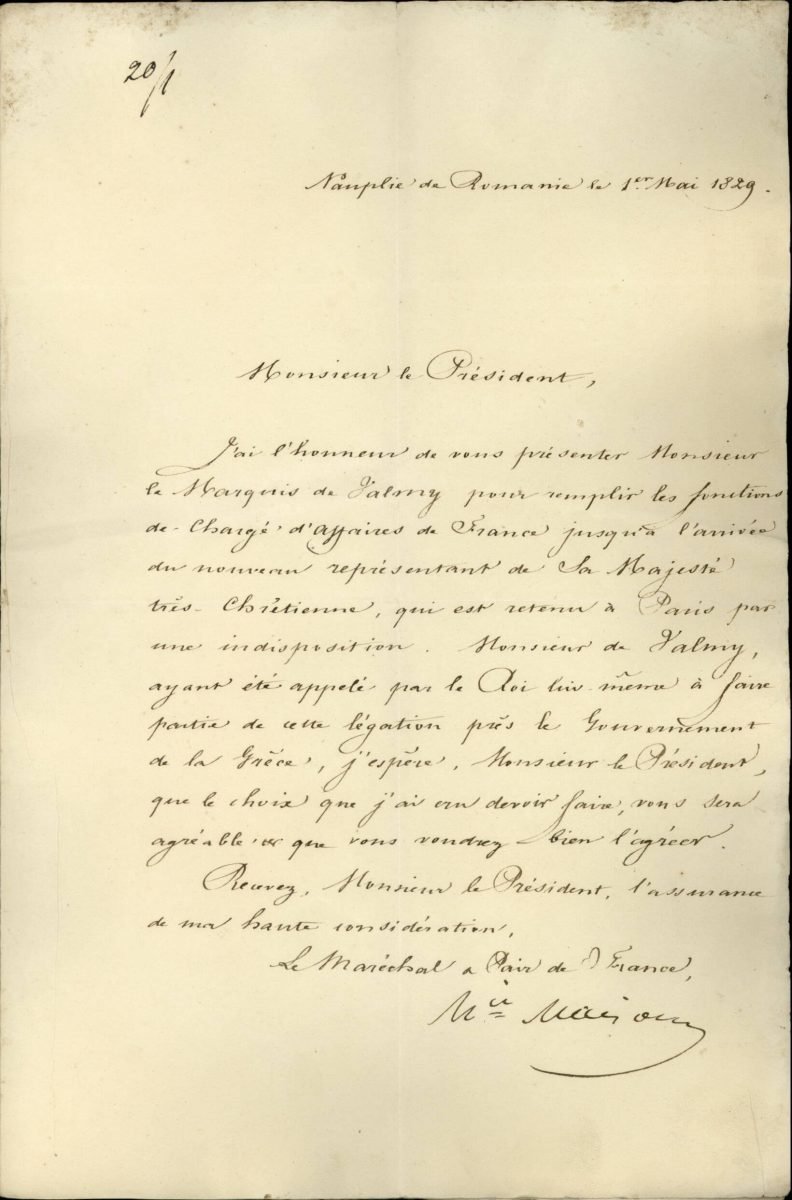 20/1
Nauplie de Romanie le 1er Mai 1829.
Monsieur le Président,
J'ai l'honneur de vous présenter Monsieur
le Marquis de Valmy pour remplir les fonctions
de Chargé d'affaires de France jusqu'à l'arrivée
du nouveau représentant de Sa Majesté
très-Chrétienne, qui est retenu à Paris par
une indisposition. Monsieur de Valmy,
ayant été appelé par le Roi lui-même à faire
partie de cette légation près le Gouvernement
de la Grèce, j'espère, Monsieur le Président,
que le choix que j'ai cru devoir faire, vous sera
agréable et que vous voudrez bien l'agréer.
Recevez, Monsieur le Président, l'assurance
de ma haute considération,
Le Maréchal Pair de France,
Mis Maison